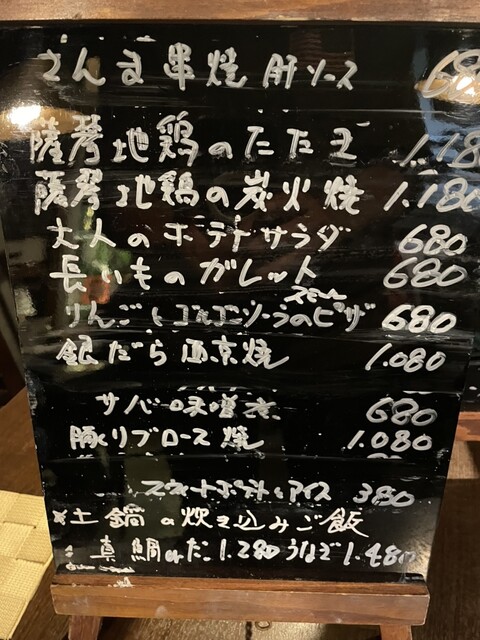 さんま串焼 肝ソース 680
薩摩地鶏のたたき 1.180
薩摩地鶏の炭火焼 1.180
大人のポテトサラダ 680
長いものガレット 680
スモール
りんごとゴルゴンゾーラのピザ 680
銀だら西京焼 1.080
サバ味噌煮 680
豚リブロース焼 1.080
スイートポテトとアイス 380
×土鍋の炊き込みご飯
真鯛 1.280 うなぎ 1.480